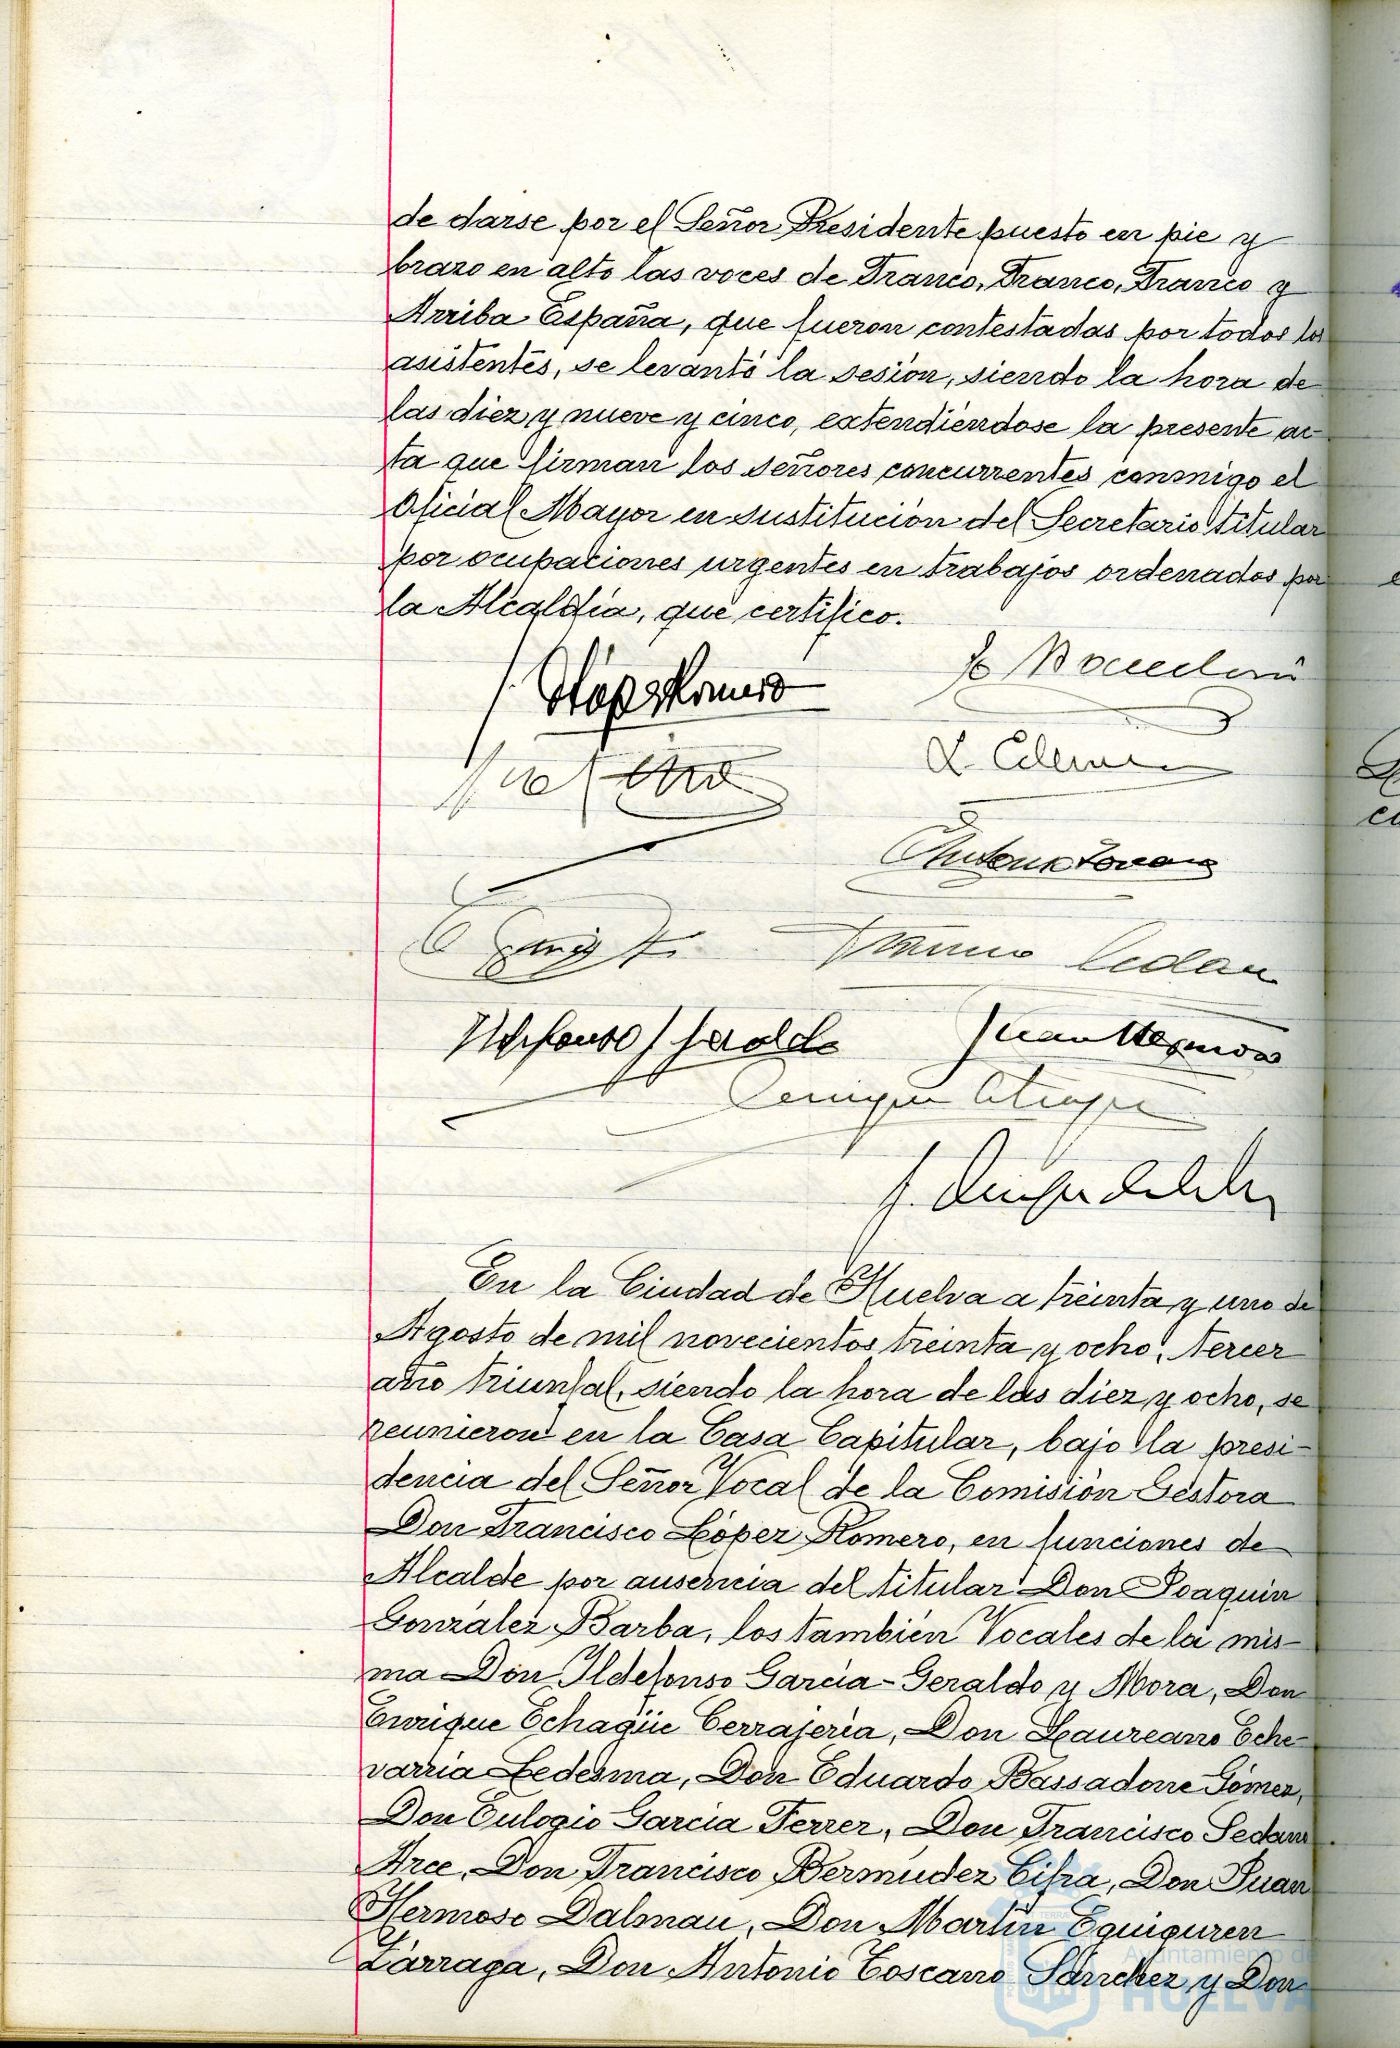 de darse por el Señor Presidente puesto en pie y
brazo en alto las voces de Franco, Franco, Franco y
Arriba España, que fueron contestadas por todos los
asistentes, se levantó la sesión, siendo la hora de
las diez y nueve y cinco, extendiéndose la presente ac-
ta que firman los señores concurrentes conmigo el
Oficial Mayor en sustitución del Secretario titular
por ocupaciones urgentes en trabajos ordenados por
la Alcaldía, que certifico.
López Romero
Antonio Toscano
Sedano
Ildefonso G Geraldo
Juan Hermoso
Enrique Echagüe
En la Ciudad de Huelva a treinta y uno de
Agosto de mil novecientos treinta y ocho, Tercer
año triunfal, siendo la hora de las diez y ocho, se
reunieron en la Casa Capitular, bajo la presi-
dencia del Señor Vocal de la Comisión Gestora
Don Francisco López Romero, en funciones de
Alcalde por ausencia del titular Don Joaquin
González Barba, los también Vocales de la mis-
ma Don Ildefonso García-Geraldo y Mora, Don
Enrique Echagüe Cerrajería, Don Laureano Eche-
varria Ledesma, Don Eduardo Bassadone Gómez,
Don Eulogio Garcia Ferrer, Don Francisco Sedano
Arce, Don Francisco Bermudez Cifra, Don Juan
Hermoso Dalmau, Don Martín Eguiguren
Lárraga, Don Antonio Toscano Sánchez y Don
Ayuntamiento de
HUELVA